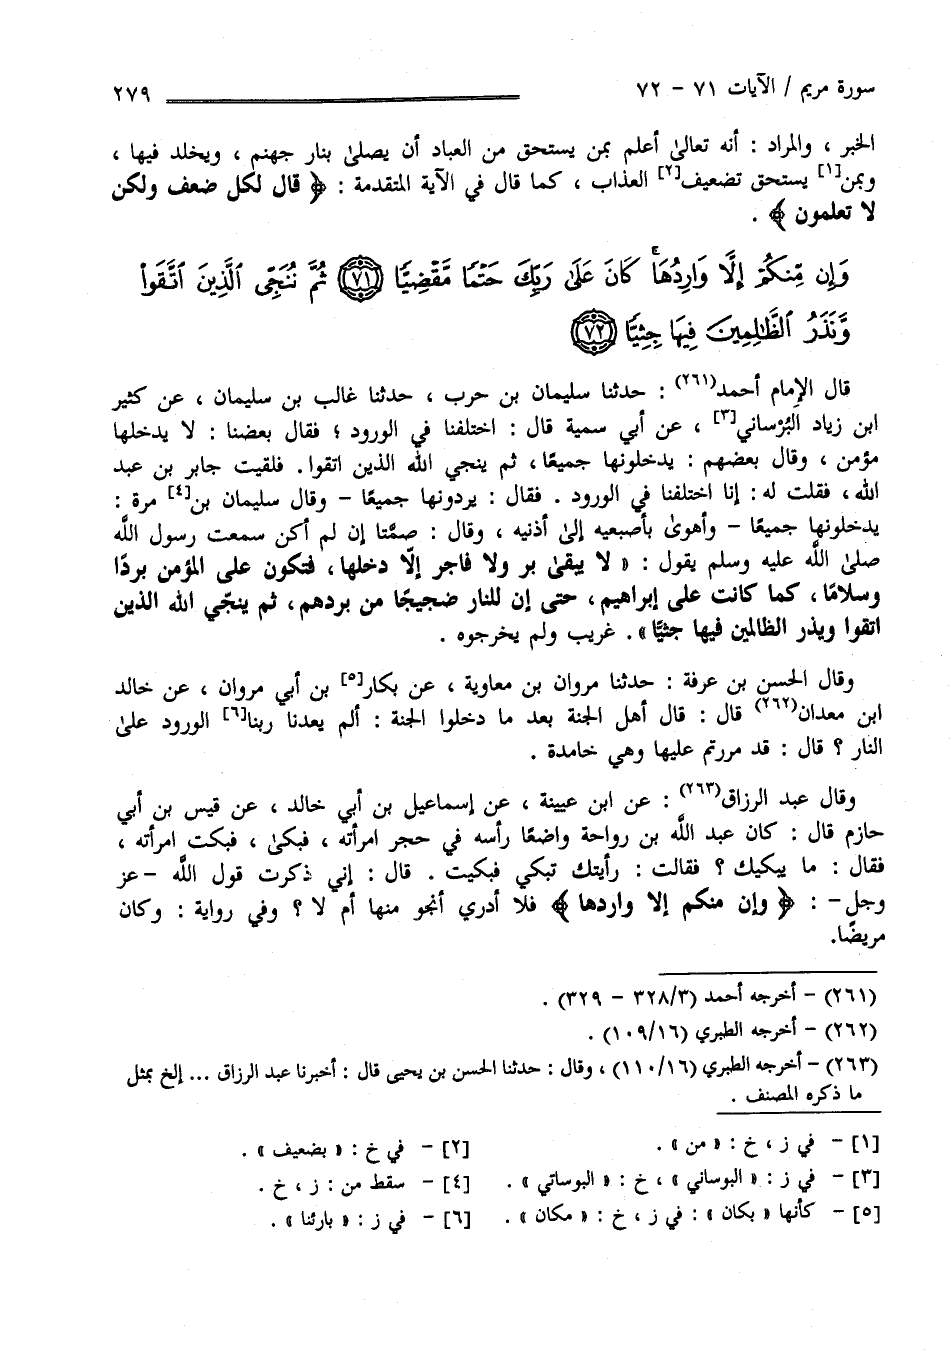 سورة مريم / الآيات ٧١ - ٧٢ ٢٧٩
الخبر ، والمراد : أنه تعالىٰ أعلم بمن يستحق من العباد أن يصلىٰ بنار جهنم ، ويخلد فيها ،
وبمن[١] يستحق تضعيف[٢] العذاب ، كما قال في الآية المتقدمة : ﴿ قال لكل ضعف ولكن
لا تعلمون ﴾ .
وَإِن مِّنكُمْ إِلَّا وَارِدُهَا ۚ كَانَ عَلَىٰ رَبِّكَ حَتْمًا مَّقْضِيًّا ﴿٧١﴾ ثُمَّ نُنَجِّى ٱلَّذِينَ ٱتَّقَوا۟
وَّنَذَرُ ٱلظَّـٰلِمِينَ فِيهَا جِثِيًّا ﴿٧٢﴾
قال الإمام أحمد(٢٦١) : حدثنا سليمان بن حرب ، حدثنا غالب بن سليمان ، عن كثير
ابن زياد البُرْساني[٣] ، عن أبي سمية قال : اختلفنا في الورود ؛ فقال بعضنا : لا يدخلها
مؤمن ، وقال بعضهم : يدخلونها جميعًا، ثم ينجي الله الذين اتقوا. فلقيت جابر بن عبد
الله، فقلت له: إنا اختلفنا في الورود . فقال : يردونها جميعًا - وقال سليمان بن[٤] مرة :
يدخلونها جميعًا - وأهوىٰ بأصبعيه إلىٰ أذنيه ، وقال : صمَّتا إن لم أكن سمعت رسول اللَّه
صلىٰ اللَّه عليه وسلم يقول : « لا يبقىٰ بر ولا فاجر إلّا دخلها، فتكون على المؤمن بردًا
وسلامًا، كما كانت على إبراهيم، حتى إن للنار ضجيجًا من بردهم، ثم ينجّي الله الذين
اتقوا ويذر الظالمين فيها جثيًّا». غريب ولم يخرجوه .
وقال الحسن بن عرفة : حدثنا مروان بن معاوية ، عن بكار[٥] بن أبي مروان ، عن خالد
ابن معدان(٢٦٢) قال : قال أهل الجنة بعد ما دخلوا الجنة : ألم يعدنا ربنا[٦] الورود علىٰ
النار ؟ قال : قد مررتم عليها وهي خامدة .
وقال عبد الرزاق(٢٦٣) : عن ابن عيينة ، عن إسماعيل بن أبي خالد ، عن قيس بن أبي
حازم قال : كان عبد اللَّه بن رواحة واضعًا رأسه في حجر امرأته ، فبكىٰ ، فبكت امرأته ،
فقال : ما يبكيك ؟ فقالت : رأيتك تبكي فبكيت . قال : إني ذكرت قول اللَّه - عز
وجل - : ﴿ وإن منكم إلا واردها ﴾ فلا أدري أنجو منها أم لا ؟ وفي رواية : وكان
مريضًا.
(٢٦١) - أخرجه أحمد (٣٢٨/٣ - ٣٢٩) .
(٢٦٢) - أخرجه الطبري (١٠٩/١٦) .
(٢٦٣) - أخرجه الطبري (١١٠/١٦) ، وقال : حدثنا الحسن بن يحيى قال : أخبرنا عبد الرزاق ... إلخ بمثل
ما ذكره المصنف .
[١] - في ز ، خ : « من » . [٢] - في خ : « بضعيف » .
[٣] - في ز : « البوساني » ، خ : « البوساتي » . [٤] - سقط من : ز ، خ .
[٥] - كأنها « بكان » : في ز ، خ : « مكان » . [٦] - في ز : « بارئنا » .